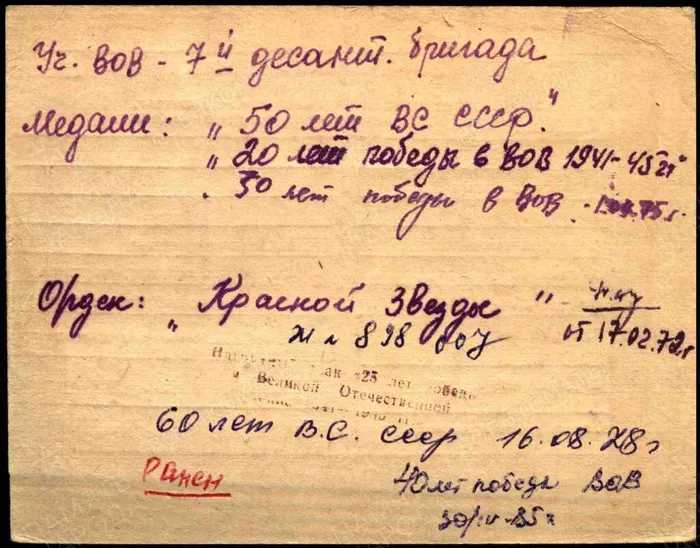 Уч. ВОВ - 7й десант. бригада
Медали: „ 50 лет ВС СССР."
„ 20 лет победы в ВОВ 1941-45гг"
30 лет победы в ВОВ 75г.
Орден: „ Красной Звезды "
от 17.02.72г.
898
Знак «25 лет победы
в Великой Отечественной
60 лет В.С. СССР 16.08.78г
Ранен
40 лет победы ВОВ
85г